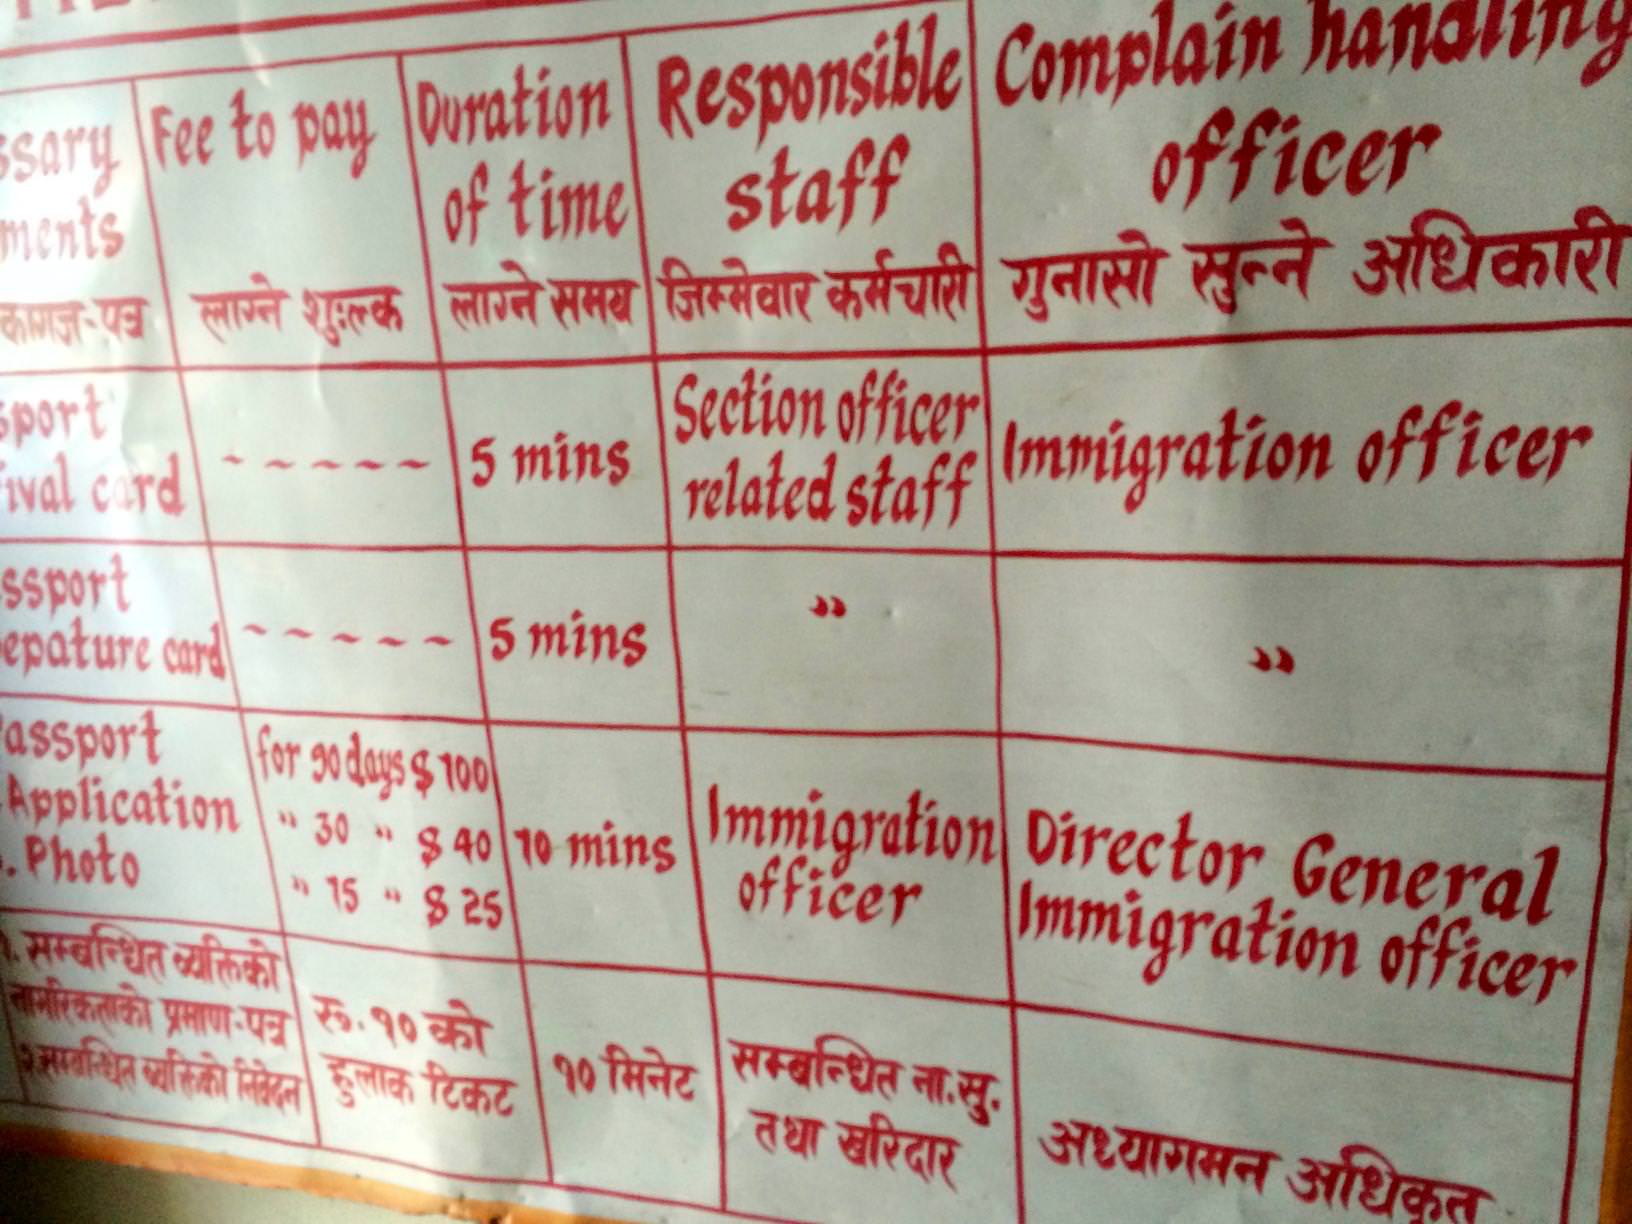 Fee to pay
लाग्ने शुःल्क
Duration
of time
लाग्ने समय
Responsible
staff
जिम्मेवार कर्मचारी
Complain handling
officer
गुनासो सुन्ने अधिकारी
ssary
ments
कागज-पत्र
sport
ival card
~ ~ ~ ~ ~
5 mins
Section officer
related staff
Immigration officer
ssport
epature card
~ ~ ~ ~ ~
5 mins
"
"
assport
Application
. Photo
for 90 days $ 100
" 30 " $ 40
" 15 " $ 25
10 mins
Immigration
officer
Director General
Immigration officer
१. सम्बन्धित व्यक्तिको
नागरिकताको प्रमाण-पत्र
२. सम्बन्धित व्यक्तिको निवेदन
रू. १० को
हुलाक टिकट
१० मिनेट
सम्बन्धित ना.सु.
तथा खरिदार
अध्यागमन अधिकृत